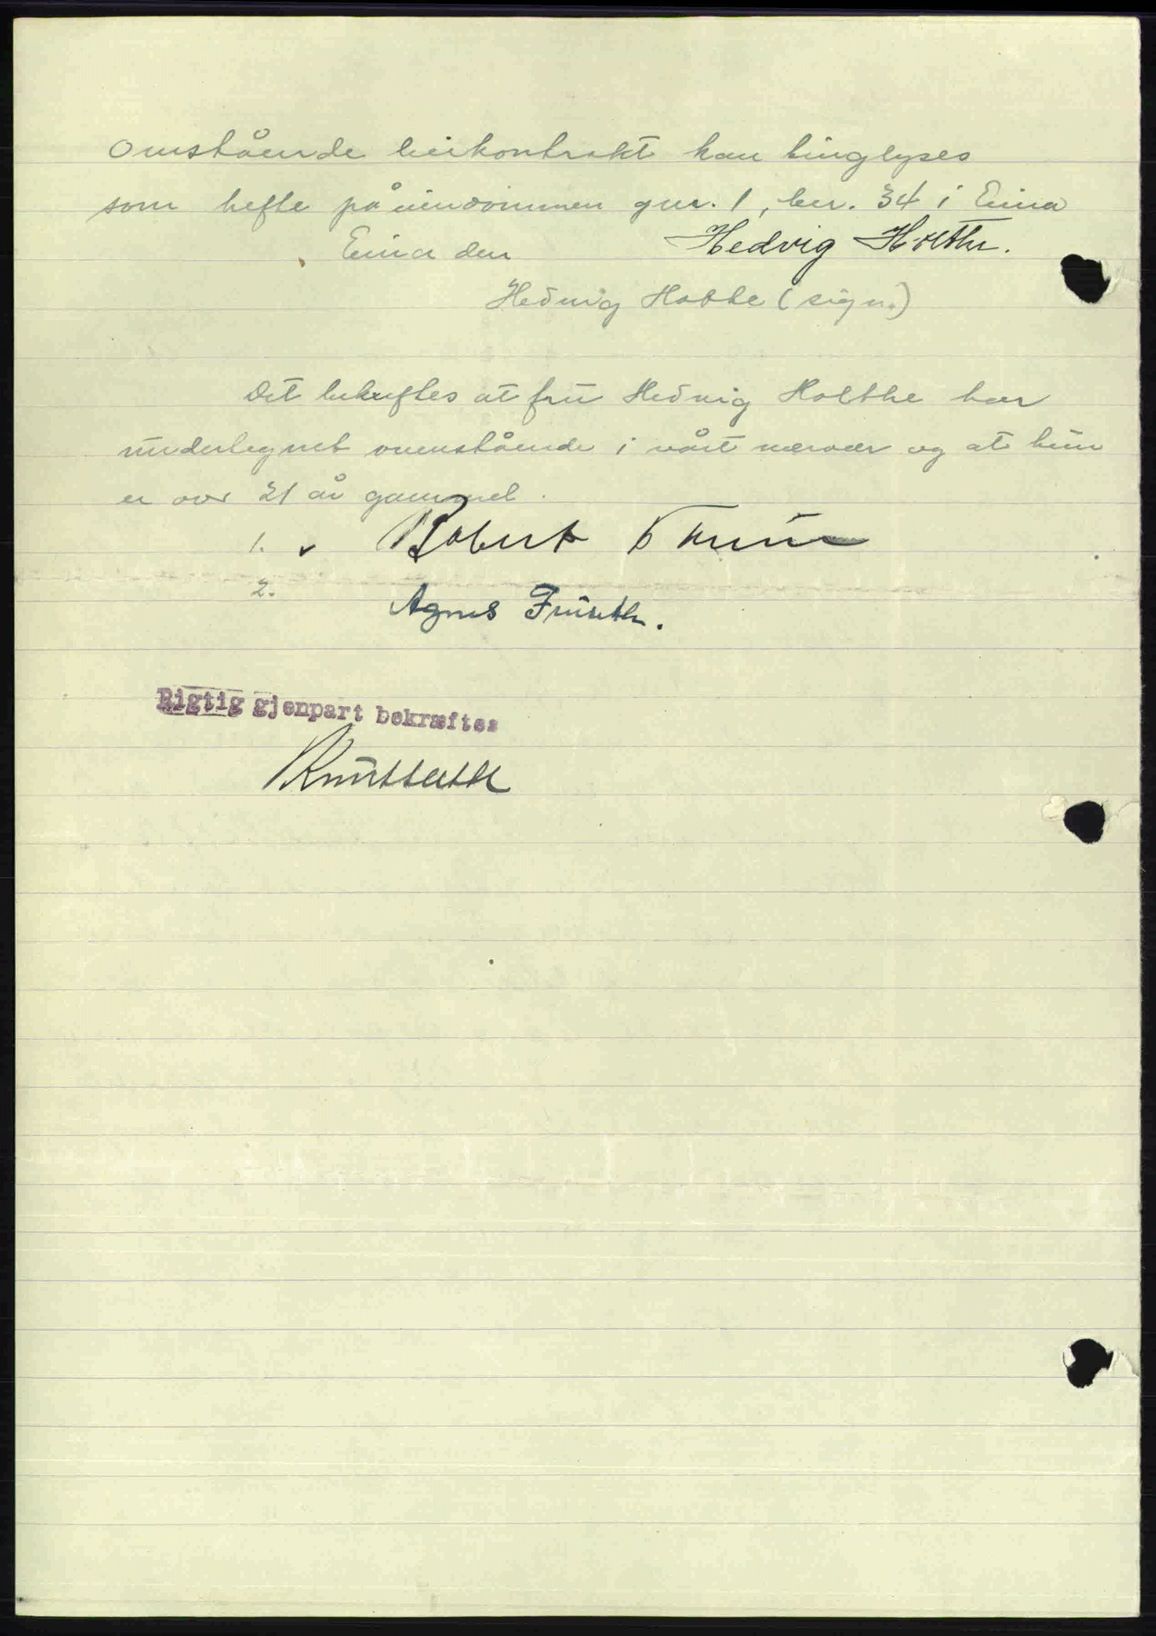 Omstående leiekontrakt kan tinglyses
som hefte på eiendommen gnr. 1, bnr. 34 i Eina
Eina den Hedvig Holthe.
Hedvig Holthe (sign.)
Det bekreftes at fru Hedvig Holthe har
undertegnet ovenstående i vårt nærvær og at hun
er over 21 år gammel.
1. Robert
2. Agnes
Rigtig gjenpart bekræftes